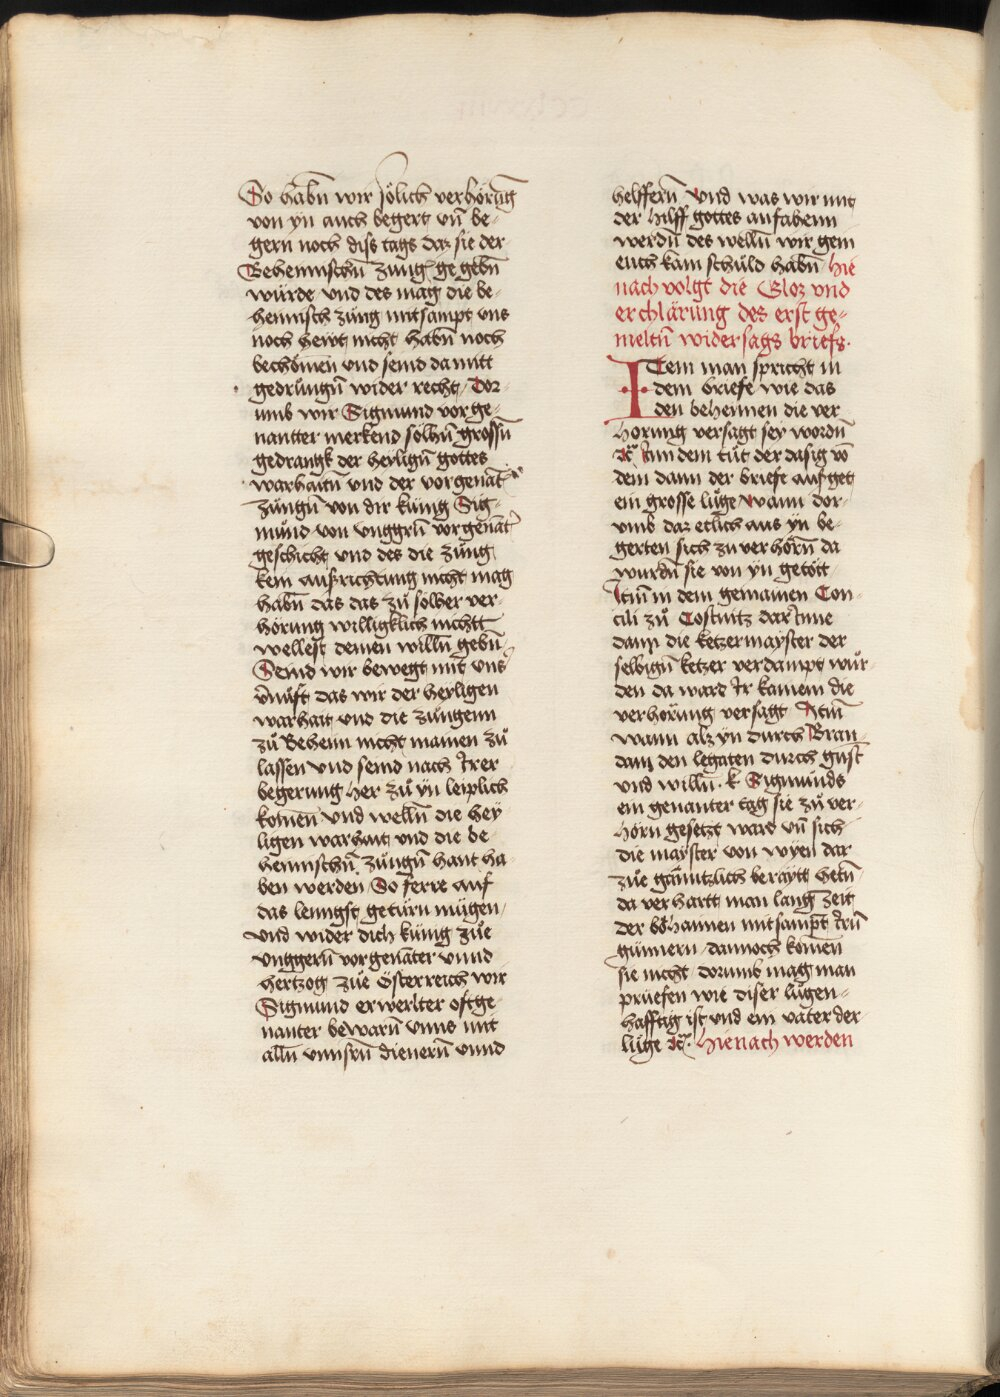 So habn̄ wir sölich verhörunḡ
von yn auch begert vn̄ be-
gern noch diss tags daz sie der
Behemischn̄ zung ge gebn̄
würde vnd des mag die be-
hemisch züng mitsampt vns
noch hewt nicht habn̄ noch
bechömen vnd seind da mitt
gedrüngn̄ wider recht / Dor-
vmb wir Sigmund vor ge-
nantter merkend solhn̄ grossn̄
gedrangk der heylign̄ gottes
warhaitn̄ vnd der vorgenāt
züngn̄ von dir küng Sig-
mund von vnggrn̄ vor genāt
geschicht vnd des die züng
kein aufzrichtung nicht mag
habn̄ das das zů solher ver-
hörung willigklich nichtt
wellest deinen willn̄ gebn̄
Seind wir bewegt mit vns
v̄nüft das wir der heyligen
warhait vnd die züngenn
zů Behem nicht mainen zů
lassen vnd seind nach irer
begerung her zů yn leiplich
komen̄ vnd welln̄ die hey
ligen warhait vnd die be-
hemischn̄ züngn̄ hant ha-
ben werden So ferre auf
das lenngst getürn mügen
vnd wider dich küng zůe
vnggern̄ vor genāter vnnd
hertzog zůe Österreich wir
Sigmund erwerlter oftge-
nanter bewarn̄ vnns mit
alln̄ vnnsrn̄ dienern̄ vnnd
helffern̄ vnd was wir mit
der hilff gottes anfahenn
werdn̄ des welln̄ wir gein
euch kain schuld habn̄ hie
nach volgt die Gloz vnd
erchlärung des erst ge-
meltn̄ widersags briefs.
Item man spricht in
dem briefe wie das
den behemen die ver
hörung versagt sey wordn̄
ꝛc̄ Ann dem tůt der dasig vō
dem dann der briefe aufget
ein grosse lüge wann dor-
vmb daz etlich aus yn be-
gerten sich zu verhörn̄ da
wurdn̄ sie von yn getött
Itm̄ in dem gemainen Con-
cili zů Costnitz dar inne
dann die ketzermayster der
selbign̄ ketzer verdampt wůr-
den da ward ir kainem die
verhörung versagt Itm̄
wann alz yn durch Bran-
dam den legaten durch gust
vnd willn̄ . k Sigmunds
ein genanter tag sie zů ver-
hörn gesetzt ward vn̄ sich
die mayster von wyen dar
zůe gänntzlich beräytt hetn̄
da verhartt man lang zeit
der bohannen mitsampt irn̄
günnern / dannoch komen̄
sie nicht / dorumb mag man
prüefen wie diser lügen-
hafftig ist vnd ein vater der
lüge ꝛc̄. Hienach werden